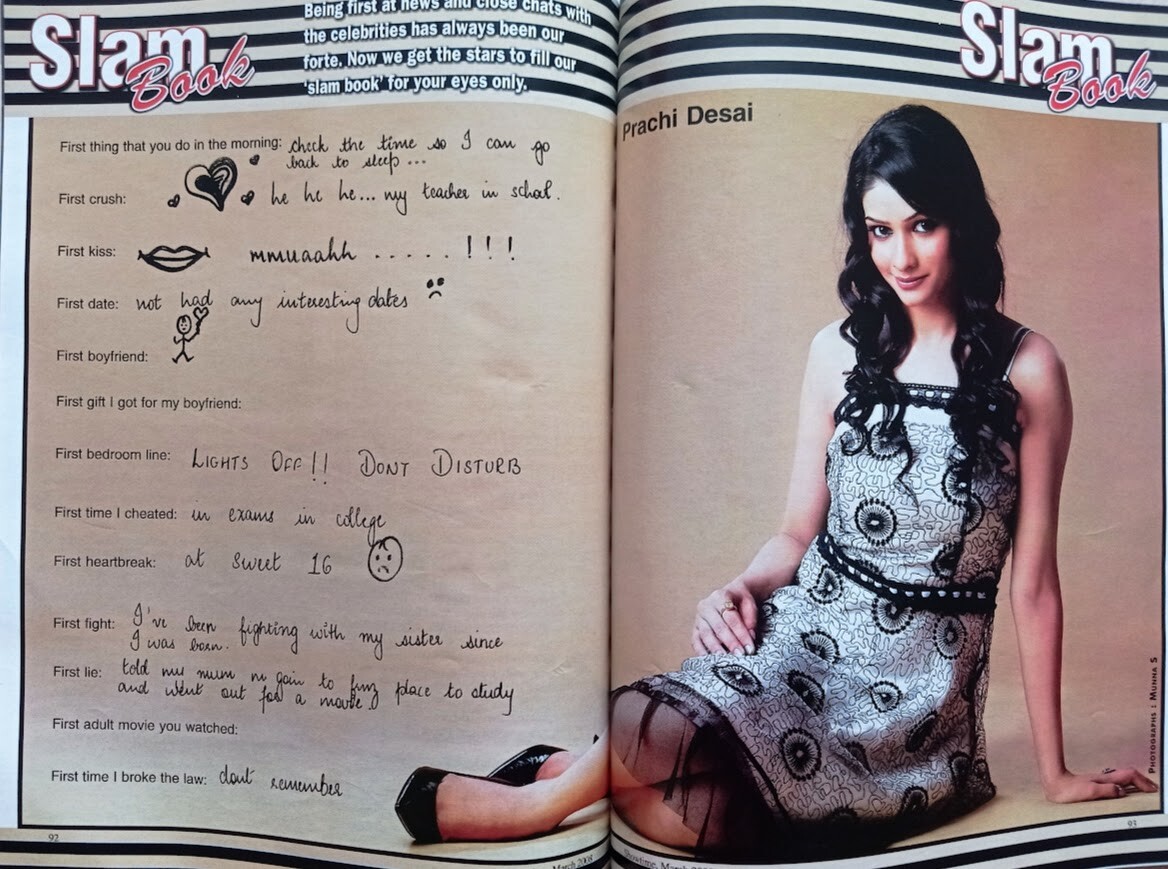 Slam
Book
Being first at news and close chats with
the celebrities has always been our
forte. Now we get the stars to fill our
'slam book' for your eyes only.
First thing that you do in the morning: check the time so I can go
back to sleep...
First crush: he he he... my teacher in school.
First kiss: mmuaahh ..... !!!
First date: not had any interesting dates
First boyfriend:
First gift I got for my boyfriend:
First bedroom line: LIGHTS OFF!! DONT DISTURB
First time I cheated: in exams in college
First heartbreak: at sweet 16
First fight: I've been fighting with my sister since
I was born.
First lie: told my mum m goin to frnz place to study
and went out for a movie.
First adult movie you watched:
First time I broke the law: dont remember
92
March 2008
Slam
Book
Prachi Desai
PHOTOGRAPHS : MUNNA S
93
Showtime, March